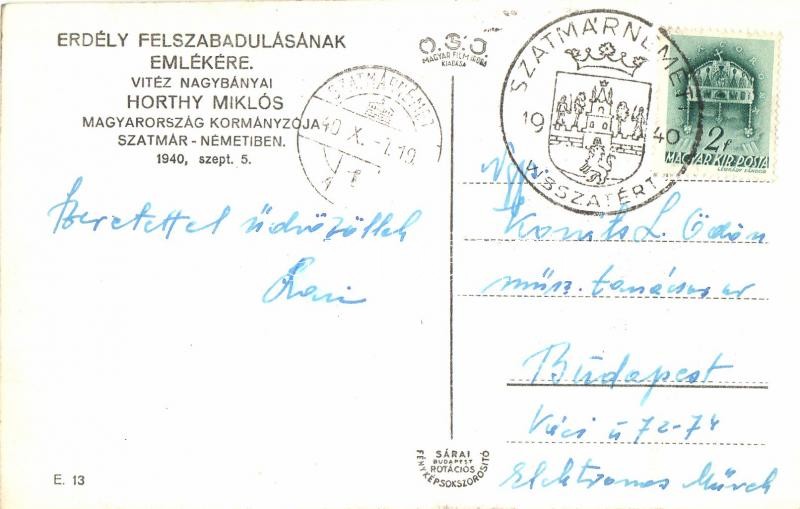 ERDÉLY FELSZABADULÁSÁNAK
EMLÉKÉRE.
VITÉZ NAGYBÁNYAI
HORTHY MIKLÓS
MAGYARORSZÁG KORMÁNYZÓJA
SZATMÁR - NÉMETIBEN.
1940, szept. 5.
O.S.J.
MAGYAR FILM IRODA
KIADÁSA
SZATMÁRNÉMETI
40 X.
SZATMÁRNÉMETI
19 40
VISSZATÉRT
2f
MAGYAR KIR POSTA
LÉGRÁDY SÁNDOR
Szeretettel üdvözöllek
Kováts L. Ödön
műsz. tanácsos úr
Budapest
Váci ú 72-74
Elektromos Művek
SÁRAI
BUDAPEST
ROTÁCIÓS
FÉNYKÉPSOKSZOROSITÓ
E. 13